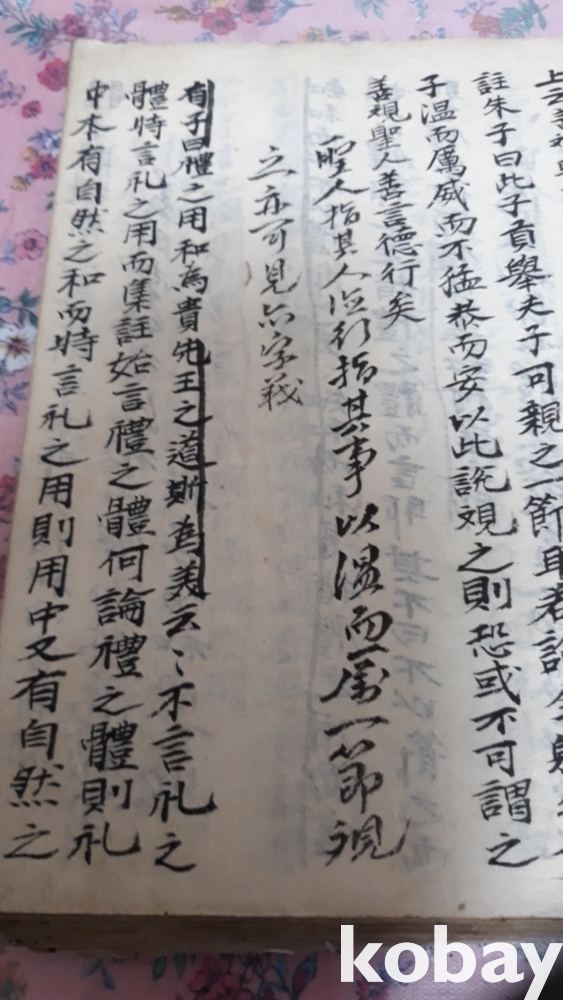 註朱子曰此子貢舉夫子可親之一節
子溫而厲威而不猛恭而安以此說觀之則恐或不可謂之
善觀聖人善言德行矣
聖人指其人德行指其事以溫而厲一節觀
之亦可見六字義
有子曰禮之用和爲貴先王之道斯爲美云〻不言礼之
體特言礼之用而集註始言禮之體何論禮之體則礼
中本有自然之和而特言礼之用則用中又有自然之
kobay